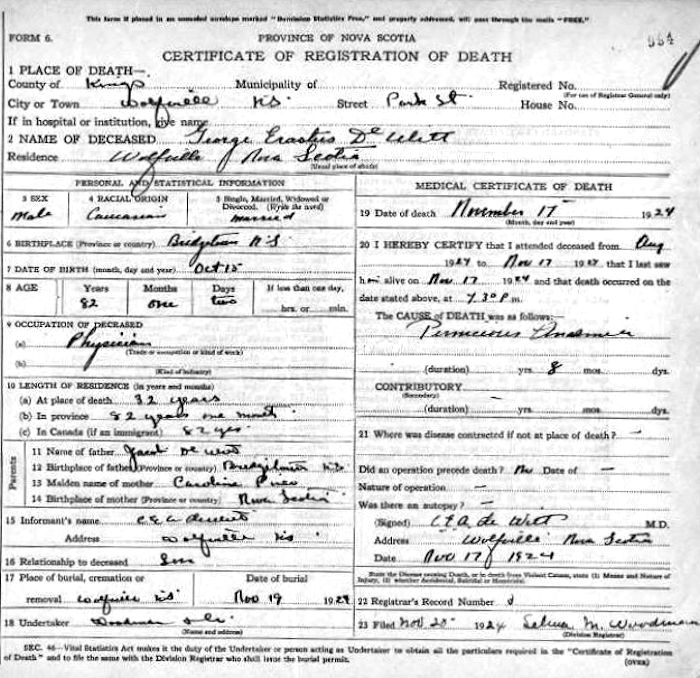 This form if placed in an unsealed envelope marked "Dominion Statistics Free," and properly addressed, will pass through the mails "FREE."
FORM 6.
PROVINCE OF NOVA SCOTIA
CERTIFICATE OF REGISTRATION OF DEATH
1 PLACE OF DEATH—
County of Kings Municipality of Registered No.
(For use of Registrar General only)
City or Town Wolfville NS. Street Park St. House No.
If in hospital or institution, give name
2 NAME OF DECEASED George Erastus De Witt
Residence Wolfville Nova Scotia
(Usual place of abode)
PERSONAL AND STATISTICAL INFORMATION
3 SEX
Male
4 RACIAL ORIGIN
Caucasian
5 Single, Married, Widowed or Divorced. (Write the word)
Married
6 BIRTHPLACE (Province or country) Bridgetown N.S
7 DATE OF BIRTH (month, day and year) Oct 15
8 AGE Years Months Days If less than one day,
82 one two hrs. or min.
9 OCCUPATION OF DECEASED
(a) Physician
(Trade or occupation or kind of work)
(b)
(Kind of industry)
10 LENGTH OF RESIDENCE (in years and months)
(a) At place of death 32 years
(b) In province 82 years one month
(c) In Canada (if an immigrant) 82 yrs
Parents
11 Name of father De Witt
12 Birthplace of father (Province or country) Bridgetown NS
13 Maiden name of mother Caroline
14 Birthplace of mother (Province or country) Nova Scotia
15 Informant's name C E A DeWitt
Address Wolfville NS
16 Relationship to deceased Son
17 Place of burial, cremation or removal Wolfville NS
Date of burial
Nov 19 1924
18 Undertaker Woodman
(Name and address)
MEDICAL CERTIFICATE OF DEATH
19 Date of death November 17 1924
(Month, day and year)
20 I HEREBY CERTIFY that I attended deceased from Aug
1924 to Nov 17 1924 that I last saw
him alive on Nov 17 1924 and that death occurred on the
date stated above, at 7.30 P.m.
The CAUSE OF DEATH was as follows:—
Pernicious Anaemia
(duration) yrs. 8 mos. dys.
CONTRIBUTORY
(Secondary)
(duration) yrs. mos. dys.
21 Where was disease contracted if not at place of death? —
Did an operation precede death? No Date of —
Nature of operation —
Was there an autopsy? —
(Signed) C E A de Witt M.D.
Address Wolfville Nova Scotia
Date Nov 17 1924
State the Disease causing Death, or in death from Violent Causes, state (1) Means and Nature of Injury, (2) whether Accidental, Suicidal or Homicidal.
22 Registrar's Record Number
23 Filed Nov 20 1924 Selina M. Woodman
(Division Registrar)
SEC. 46—Vital Statistics Act makes it the duty of the Undertaker or person acting as Undertaker to obtain all the particulars required in the "Certificate of Registration
of Death" and to file the same with the Division Registrar who shall issue the burial permit.
(OVER)